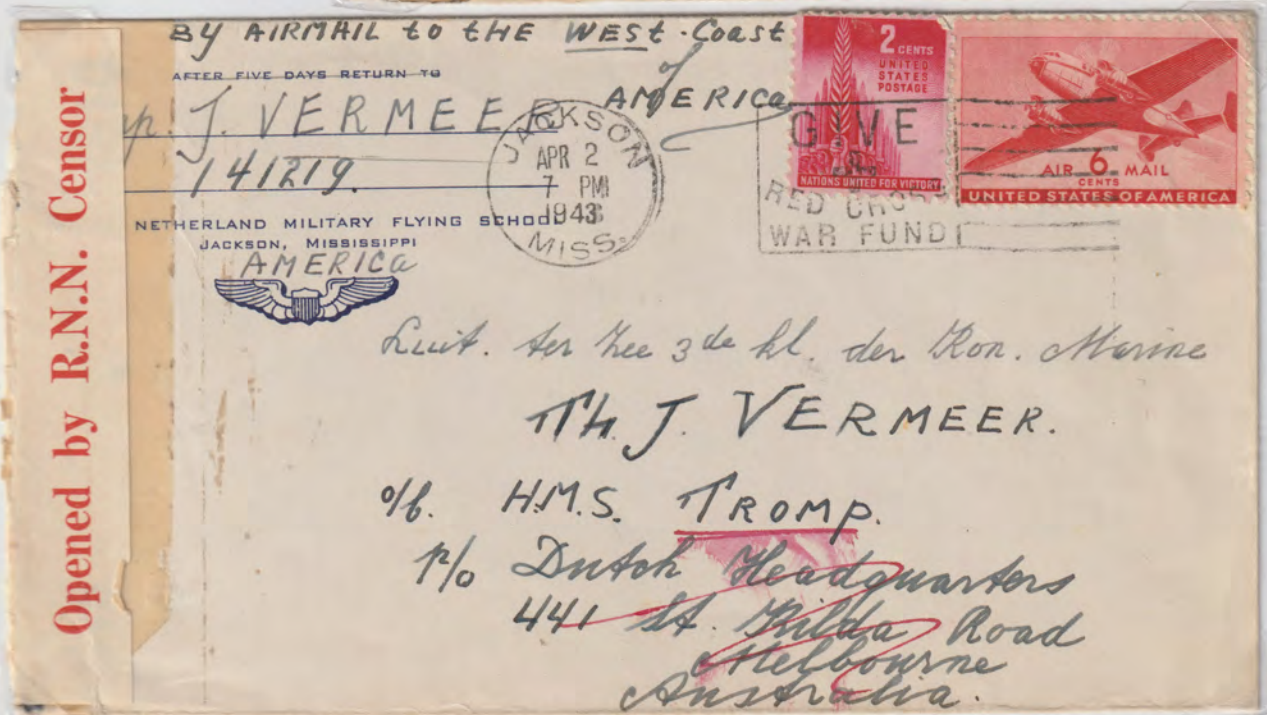 BY AIRMAIL to tHE WEST-Coast
of
AMERICa
AFTER FIVE DAYS RETURN TO
J. VERMEER
141219.
NETHERLAND MILITARY FLYING SCHOOL
JACKSON, MISSISSIPPI
AMERICa
JACKSON
APR 2
7 PM
1943
MISS.
GIVE
RED CROSS
WAR FUND
2 CENTS
UNITED
STATES
POSTAGE
NATIONS UNITED FOR VICTORY
AIR 6 MAIL
CENTS
UNITED STATES OF AMERICA
Opened by R.N.N. Censor
Luit. ter Zee 3de kl. der Kon. Marine
Th. J. VERMEER.
o/b. H.M.S. TROMP.
p/o Dutch Headquarters
441 St. Kilda Road
Melbourne
Australia.